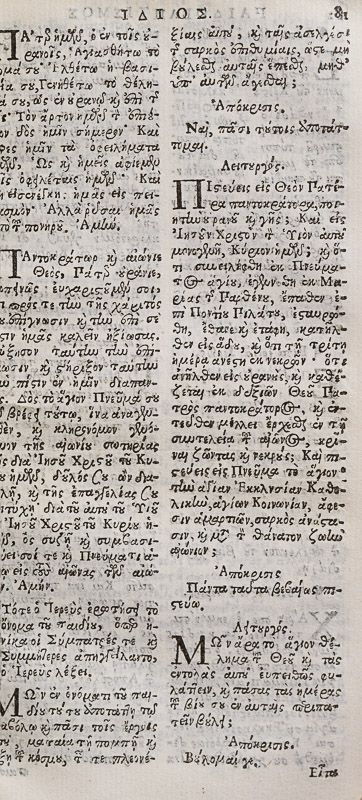 ΙΔΙΟΣ.
81
Πάτερ ἡμῶν, ὁ ἐν τοῖς οὐ-
ρανοῖς, Ἁγιασθήτω τὸ
ὄνομά σου, Ἐλθέτω ἡ βασι-
λεία σου, Γενηθήτω τὸ θέλη-
μά σου, ὡς ἐν οὐρανῷ καὶ ἐπὶ τ
Τὸν ἄρτον ἡμῶν τ ἐπιού-
δὸς ἡμῖν σήμερον· Καὶ
ἄφες ἡμῖν τὰ ὀφειλήματα
ἡμῶν, Ὡς καὶ ἡμεῖς ἀφίεμεν
τοῖς ὀφειλέταις ἡμῶν· Καὶ
εἰσενέγκῃς ἡμᾶς εἰς πει-
ρασμὸν· Ἀλλὰ ῥῦσαι ἡμᾶς
τοῦ πονηροῦ. Ἀμήν.
Παντοκράτωρ καὶ αἰώνιε
Θεὸς, Πάτερ οὐράνιε,
ταπεινῶς εὐχαριστοῦμέν σοι,
πρός τε τὴν τῆς χάριτος
ἐπίγνωσιν καὶ τὴν ἐπὶ σὲ
πίστιν ἡμᾶς καλεῖν ἠξίωσας.
αὔξησον ταύτην τὴν ἐπί-
γνωσιν καὶ στήριξον ταύτην
τὴν πίστιν ἐν ἡμῖν διαπαν-
τός. Δὸς τὸ ἅγιον Πνεῦμά σου
τῷ βρέφει τούτῳ, ἵνα ἀναγεν-
νηθὲν, καὶ κληρονόμον
τῆς αἰωνίου σωτηρίας
διὰ Ἰησοῦ Χριστοῦ τοῦ Κυ-
ρίου ἡμῶν,
καὶ τῆς ἐπαγγελίας σου
ἐπιτύχῃ διὰ τοῦ αὐτοῦ τοῦ Υἱοῦ
Ἰησοῦ Χριστοῦ τοῦ Κυρίου ἡ-
μῶν, ὃς συζῇ καὶ συμβασι-
λεύει σοί τε καὶ Πνεύματι ἁ-
γίῳ εἰς τοὺς αἰῶνας τῶν αἰώ-
νων. Ἀμήν.
Τότε ὁ Ἱερεὺς ἐρωτήσῃ τὸ
ὄνομα τοῦ παιδίου, ὅπερ
ἡνίκα οἱ Σύμπατρές τε καὶ
Συμμήτερες ἀπηγγείλαντο,
ὁ Ἱερεὺς λέξει.
Μῶν ἐν ὀνόματι τοῦ παι-
δίου τούτου ἀποτάττῃ τῷ
διαβόλῳ καὶ πᾶσι τοῖς ἔργοις
αὐτοῦ, ματαίᾳ τῇ πομπῇ καὶ
δόξῃ τ κόσμου, τ τε πλεονε-
ξίαις αὐτοῦ, καὶ ταῖς ἀσελγέσι
τ σαρκὸς ἐπιθυμίαις, ὥστε μὴ
βούλεσθαι αὐταῖς ἕπεσθαι, μηδ᾽
ὑπ᾽ αὐτῶν ἄγεσθαι;
Ἀπόκρισις.
Ναὶ, πᾶσι τούτοις ἀποτάτ-
τομαι.
Λειτουργός.
Πιστεύεις εἰς Θεὸν Πατέ-
ρα παντοκράτορα, ποι-
ητὴν οὐρανοῦ καὶ γῆς; Καὶ εἰς
Ἰησοῦν Χριστὸν τ Υἱὸν αὐτοῦ
μονογενῆ, Κύριον ἡμῶν; καὶ ὅ-
τι συνειλήφθη ἐκ Πνεύμα-
τος ἁγίου, ἐγεννήθη ἐκ Μα-
ρίας τ Παρθένου, ἔπαθεν ἐ-
πὶ Ποντίου Πιλάτου, ἐσταυρώ-
θη, ἔθανε καὶ ἐτάφη, κατῆλ-
θεν εἰς ᾅδου, καὶ ὅτι τῇ τρίτῃ
ἡμέρᾳ ἀνέστη ἐκ νεκρῶν· ὅτι
ἀνῆλθεν εἰς οὐρανοὺς, καὶ καθέ-
ζεται ἐκ δεξιῶν Θεοῦ Πα-
τρὸς παντοκράτορος, καὶ ἐν-
τεῦθεν μέλλει ἔρχεσθαι ἐν τῇ
συντελείᾳ τ αἰῶνος, κρι-
ναι ζῶντας καὶ νεκρούς; Καὶ πι-
στεύεις εἰς Πνεῦμα τὸ ἅγιον·
τὴν ἁγίαν Ἐκκλησίαν Καθο-
λικὴν, ἁγίων Κοινωνίαν, ἄφε-
σιν ἁμαρτιῶν, σαρκὸς ἀνάστα-
σιν, καὶ μετὰ τ θάνατον ζωὴν
αἰώνιον;
Ἀπόκρισις
Πάντα ταῦτα βεβαίως πι-
στεύω.
Λειτουργός.
Μῶν ἄρα τὸ ἅγιον θέ-
λημα τ Θεοῦ καὶ τὰς
ἐντολὰς αὐτοῦ εὐπειθῶς φυ-
λάττειν, καὶ πάσας τὰς ἡμέρας
τ βίου σου ἐν αὐταῖς περιπα-
τεῖν βούλῃ;
Ἀπόκρισις
Βούλομαί γε.
Εἶτα